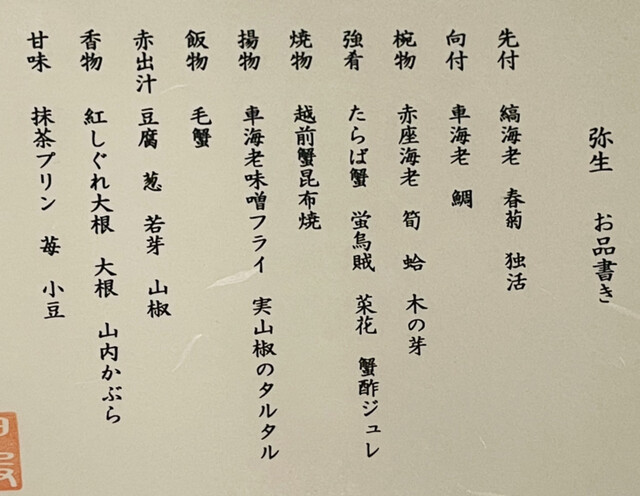 弥生　お品書き
先付　縞海老　春菊　独活
向付　車海老　鯛
椀物　赤座海老　筍　蛤　木の芽
強肴　たらば蟹　蛍烏賊　菜花　蟹酢ジュレ
焼物　越前蟹昆布焼
揚物　車海老味噌フライ　実山椒のタルタル
飯物　毛蟹
赤出汁　豆腐　葱　若芽　山椒
香物　紅しぐれ大根　大根　山内かぶら
甘味　抹茶プリン　苺　小豆